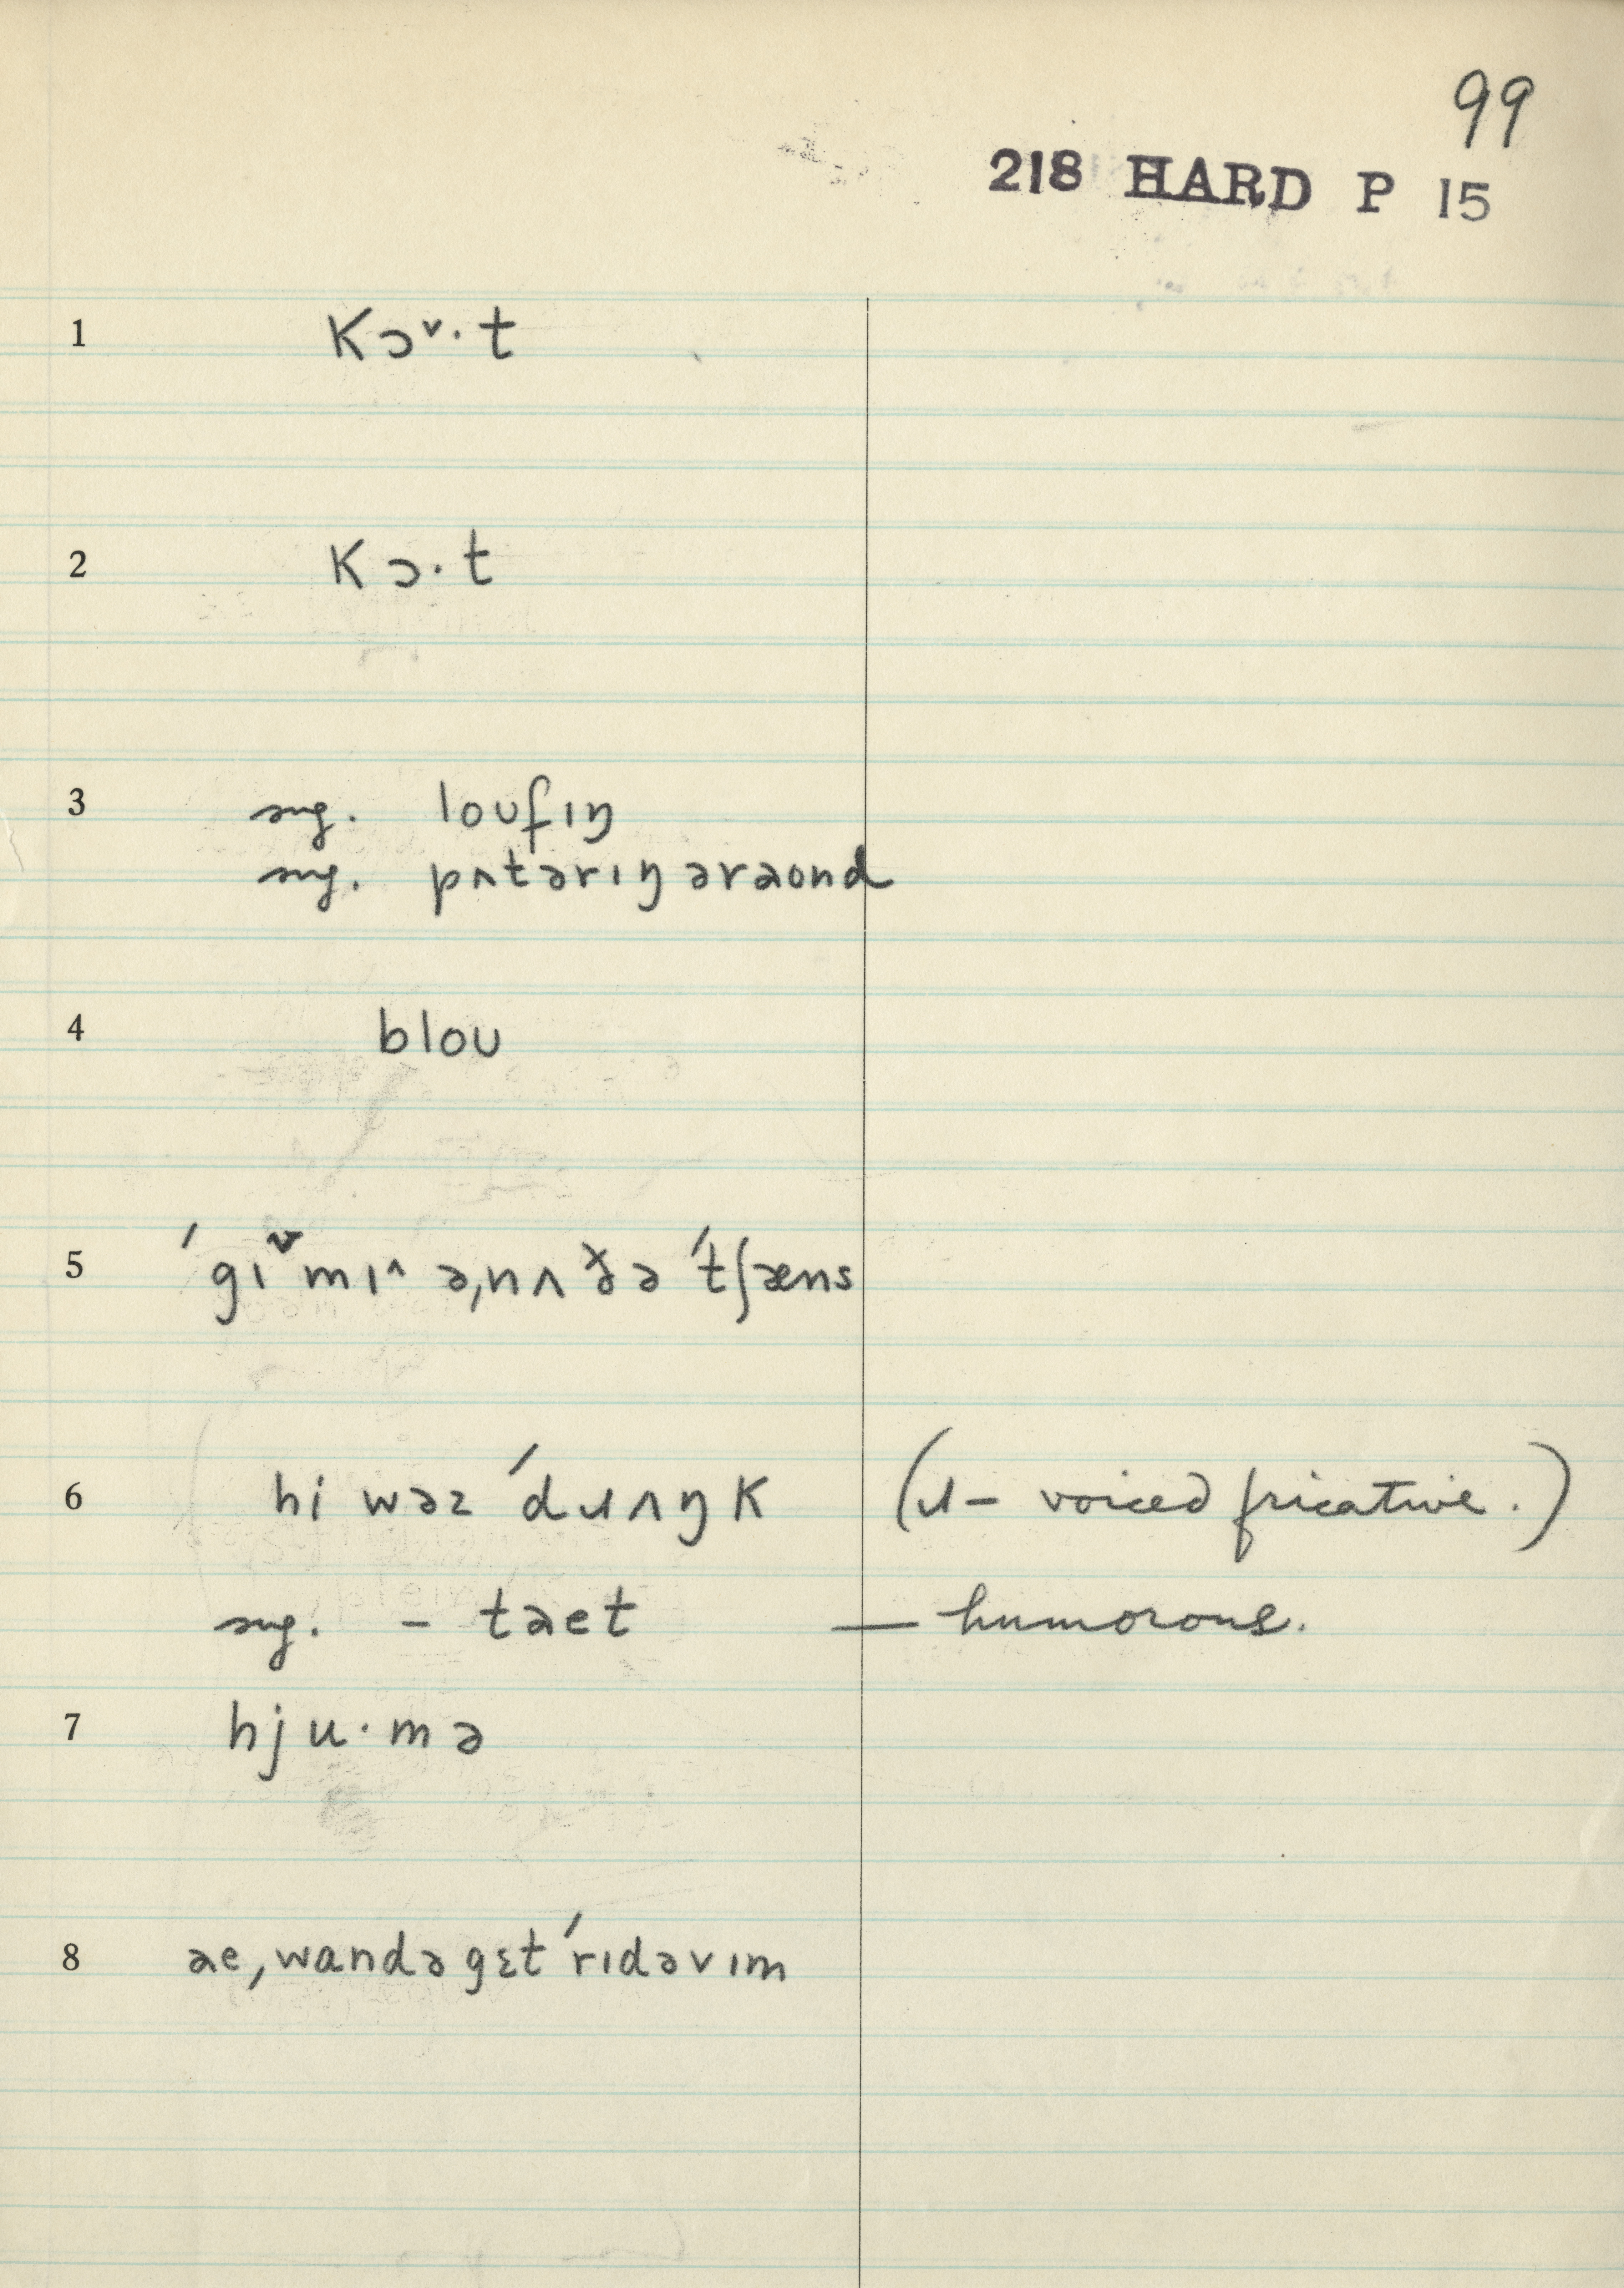 99
218 HARD P 15
1 kɔ˅·t
2 kɔ·t
3 sug. loufɪŋ
sug. pʌtərɪŋ əraond
4 blou
5 ˈgɪ˅mɪ^ əˌnʌðə ˈtʃæns
6 hi wəz ˈdɹʌŋk (ɹ – voiced fricative.)
sug. – taet — humorous.
7 hju·mə
8 aeˌwandə gɛt ˈrɪdəvɪm